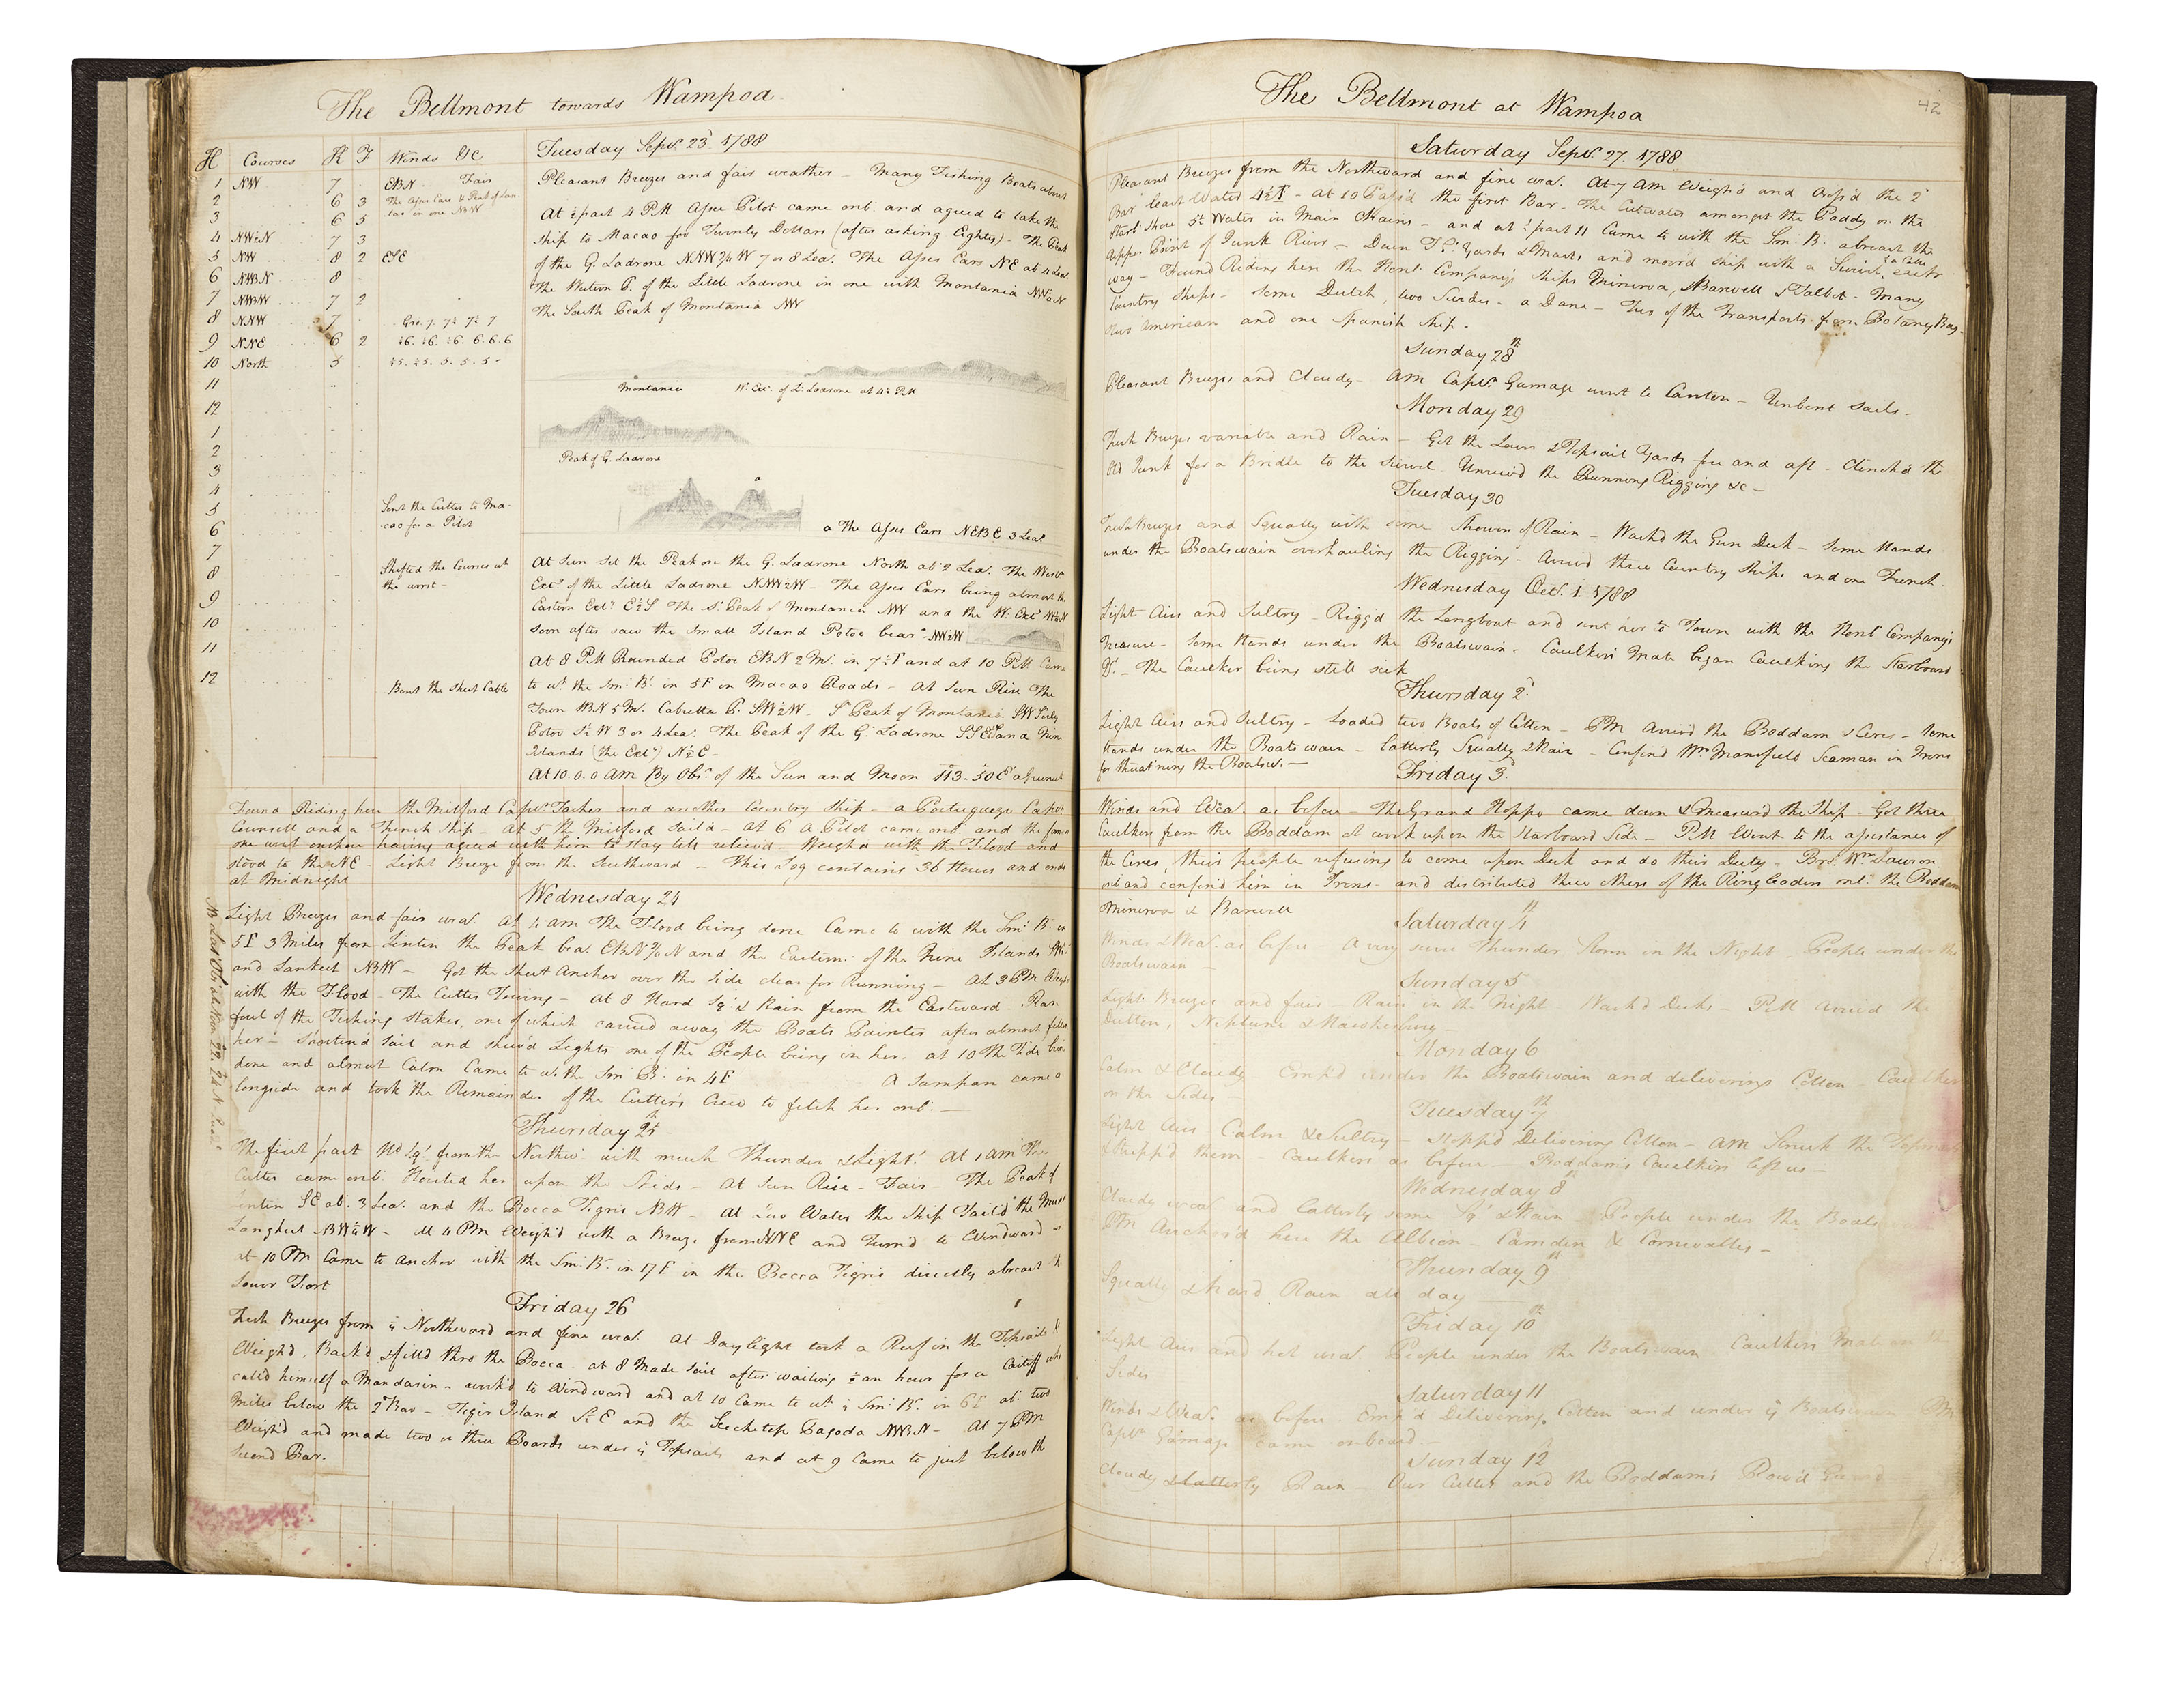 The Bellmont towards Wampoa
H Courses K F Winds &c
Tuesday Sepr. 23d. 1788
1 NW 7 EBN Fair
2 6 3
3 6 5
4 NW½N 7 3
5 NW 8 2 ESE
6 NWBN 8
7 NWBW 7 2
8 NNW 7
9 NNE 6 2
10 North 5
11
12
1
2
3
4
5 Sent the Cutter to Ma-
6 cao for a Pilot
7
8 Shifted the Courses wt.
9 the worst -
10
11
12 Bent the Sheet Cable
Pleasant Breezes and fair weather - Many Fishing Boats about
At ½ past 4 PM Asses Pilot came onb. and agreed to take the
Ship to Macao for Twenty Dollars (after asking Eighty) - The Peak
of the G. Ladrone NNW¾W 7 or 8 Lea. The Asses Ears NE ab 4 Lea.
The Western P. of the Little Ladrone in one with Montania
The South Peak of Montania NW
Montania W. Ext. of L. Ladrone at 4½ PM
Peak of G. Ladrone
a
a The Asses Ears NEBE 3 Lea.
At Sun Set the Peak on the G. Ladrone North ab 2 Lea. The West
Ext. of the Little Ladrone NNW½W - The Asses Ears being almost the
Eastern Ext. E½S The S. Peak of Montania NW and the W. Ext.
Soon after saw the Small Island Potoe bear. NW½W
At 8 PM Rounded Potoe EBN 2 M. in 7½F and at 10 PM Came
to wt. the Sm. B. in 5F in Macao Roads - At Sun Rise The
Town WBN 5 M. Cabretta P. SW½W - S. Peak of Montania SW
Potoe W 3 or 4 Lea. The Peak of the G. Ladrone and Nine
Islands (the Ext.) N½E -
At 10.0.0 AM By Obs. of the Sun and Moon 113-50 E
Found Riding here the Milford Capt. and another Country Ship - a Portugueze Capt.
Counsell and a French Ship - At 5 The Milford Sail'd - At 6 A Pilot came onb. and the
one went onshore having agreed with him to stay till reliev'd - Weigh'd with the Flood and
stood to the NE - Light Breeze from the Southward - This Log contains 36 Hours and ends
at Midnight
Wednesday 24
Light Breezes and fair wea. At 4 AM The Flood being done Came to with the Sm. B. in
5F 3 Miles from Lintin the Peak bea. EBN¾N and the Eastern. of the Nine Islands
and Lankeet NBW - Got the Sheet Anchor over the Side clear for Running - At 3 PM Weigh'd
with the Flood - The Cutter Towing - At 8 Hard Sq. & Rain from the Eastward - Ran
foul of the Fishing Stakes, one of which carried away the Boats Painter after almost
her - Short'end Sail and shew'd Lights one of the People being in her. At 10 The Tide being
done and almost Calm Came to wt. the Sm. B. in 4F A Sampan came a
longside and took the Remainder of the Cutters Crew to fetch her onb. -
Thursday 25th
The first part Hd. Sq. from the Northwd. with much Thunder & Light. At 1 AM The
Cutter came onb. Hoisted her upon the Skids - At Sun Rise - Fair - The Peak of
Lintin SE ab. 3 Lea. and the Bocca Tigris NBW - At Low Water the Ship Tail'd the Mud
Langkeet NBW½W - At 4 PM Weigh'd with a Breeze from NNE and Turn'd to Windward
at 10 PM Came to Anchor with the Sm. B. in 17F in the Bocca Tigris directly abreast the
Lower Fort
Friday 26
Fresh Breezes from ye Northward and fine wea. At Daylight took a Reef in the Topsails &
Weigh'd, Back'd & fill'd thro the Bocca. at 8 Made Sail after waiting ½ an hour for a Caitiff who
call'd himself a Mandarin - work'd to Windward and at 10 Came to wt. ye Sm. B. in 6F ab. two
Miles below the 2d. Bar - Tiger Island S½E and the Pagoda NWBN - At 7 PM
Weigh'd and made two or three Boards under ye Topsails and at 9 Came to just below the
Second Bar.
The Bellmont at Wampoa
42
Saturday Sepr. 27. 1788
Pleasant Breezes from the Northward and fine wea. At 7 AM Weigh'd and Cross'd the 2d
Bar least Water 4½F - At 10 Pass'd the first Bar - The Cutwater amongst the Paddy on the
Starb. Shore Water in Main Chains - and at ½ past 11 Came to with the Sm. B. abreast the
upper Point of Junk River - Down T.G. Yards & Masts and moor'd Ship with a Swivel, each
way - Found Riding here the Honb. Company's Ships Minerva, Barwell & Talbot - Many
Country Ships - some Dutch, two Swedes - a Dane - Two of the Transports from Botany Bay -
Two American and one Spanish Ship -
Sunday 28th
Pleasant Breezes and Cloudy - AM Capt. Gamage went to Canton - Unbent Sails -
Monday 29
Fresh Breezes variable and Rain - Got the Lower & Topsail Yards fore and aft - Clinch'd the
Old Junk for a Bridle to the Swivel. Unreev'd the Running Rigging &c -
Tuesday 30
Fresh Breezes and Squally with some Showers of Rain - Wash'd the Gun Deck - Some Hands
under the Boatswain overhauling the Rigging - Arriv'd three Country Ships and one French.
Wednesday Octr. 1. 1788
Light Airs and Sultry - Rigg'd the Longboat and sent her to Town with the Honb. Company's
Treasure - Some Hands under the Boatswain. Caulkers Mate began Caulking the Starboard
Sd. - The Caulker being still sick
Thursday 2d.
Light Airs and Sultry - Loaded two Boats of Cotton - PM Arriv'd the Boddam & Ceres - Some
Hands under the Boatswain - Latterly Squally & Rain - Confin'd Wm. Mansfield Seaman in Irons
for threat'ning the Boatsw. -
Friday 3d.
Winds and Wea. as before - The Grand Hoppo came down & Measur'd the Ship - Got three
Caulkers from the Boddam at work upon the Starboard Side - PM Went to the assistance of
the Ceres, their people refusing to come upon Deck and do their Duty - Bro. Wm. Lawson
onb and confin'd him in Irons - and distributed three others of the Ringleaders onb. the Boddam
Minerva & Barwell
Saturday 4th
Winds & Wea. as before A very severe Thunder Storm in the Night - People under the
Boatswain -
Sunday 5
Light Breezes and fair - Rain in the Night Wash'd Decks - PM Arriv'd the
Dutton, Neptune & Hawkesbury
Monday 6
Calm & Cloudy Emp'd under the Boatswain and delivering Cotton - Caulkers
on the Sides
Tuesday 7th
Light Airs Calm & Sultry - Stopp'd Delivering Cotton - AM Struck the Topmasts
& Stripp'd them - Caulkers as before - Boddam's Caulkers left us -
Wednesday 8th
Cloudy wea. and Latterly some Sq. & Rain - People under the Boats
PM Anchor'd here the Albion Camden & Cornwallis -
Thursday 9th
Squally & hard Rain all day
Friday 10th
Light Airs and hot wea. People under the Boatswain Caulkers Mate on the
Sides
Saturday 11
Winds & Wea. as before Emp'd Delivering Cotton and under ye Boatswain PM
Capt. Gamage came onboard
Sunday 12
Cloudy & latterly Rain - Our Cutter and the Boddam's Row'd Guard